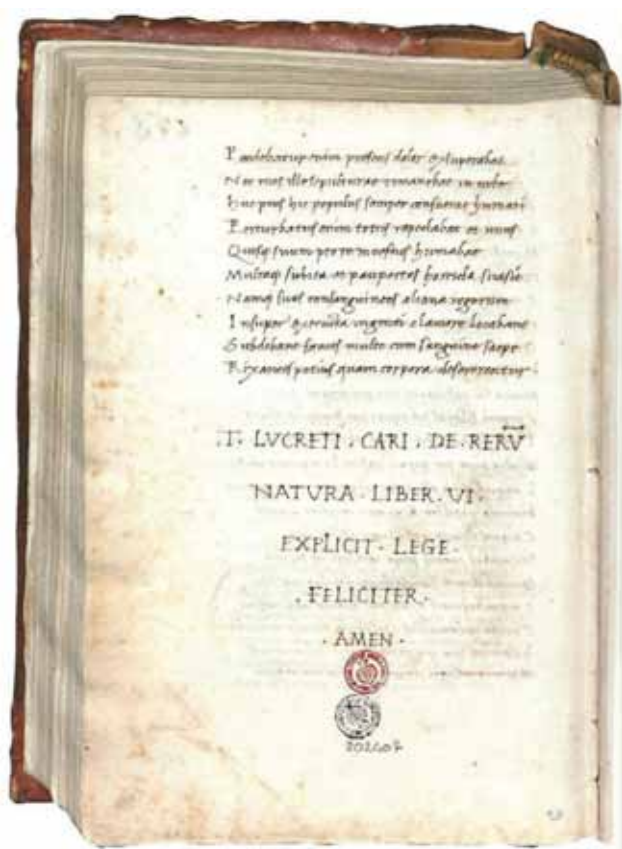 enim presens dolor & superabat
Nec mos ille sepulturae remanebat in urbe
hic populus semper consuerat humari
Perturbatus enim totus repedabat et unus
Quisq suum humabat
Multaq subita et paupertas horrida suasit
Namq suos consanguineos aliena rogorum
Insuper ingenti clamore locabant
Subdebant faces multo cum sanguine saepe
Rixantes potius quam corpora desererentur
.T. LVCRETI . CARI . DE . RERV̅
NATVRA . LIBER . VI .
EXPLICIT . LEGE .
. FELICITER .
. AMEN .